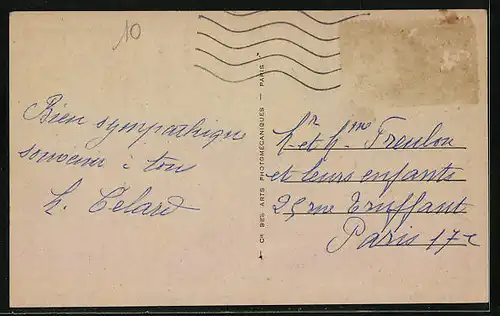 10
Bien sympathique
souvenir à tous
h. Celard
Cie DES ARTS PHOTOMÉCANIQUES — PARIS
Mr et Mme Treulon
et leurs enfants
25 rue Truffaut
Paris 17e